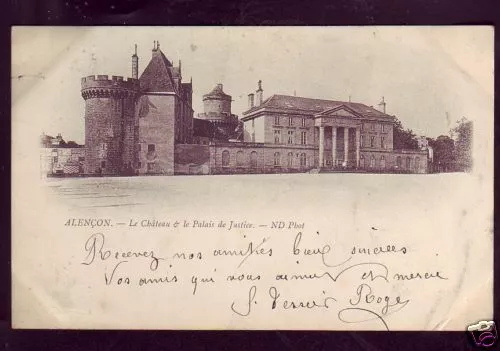 ALENÇON. — Le Château & le Palais de Justice. — ND Phot
Recevez nos amitiés bien sincères
Vos amis qui vous aiment et merci
Roger